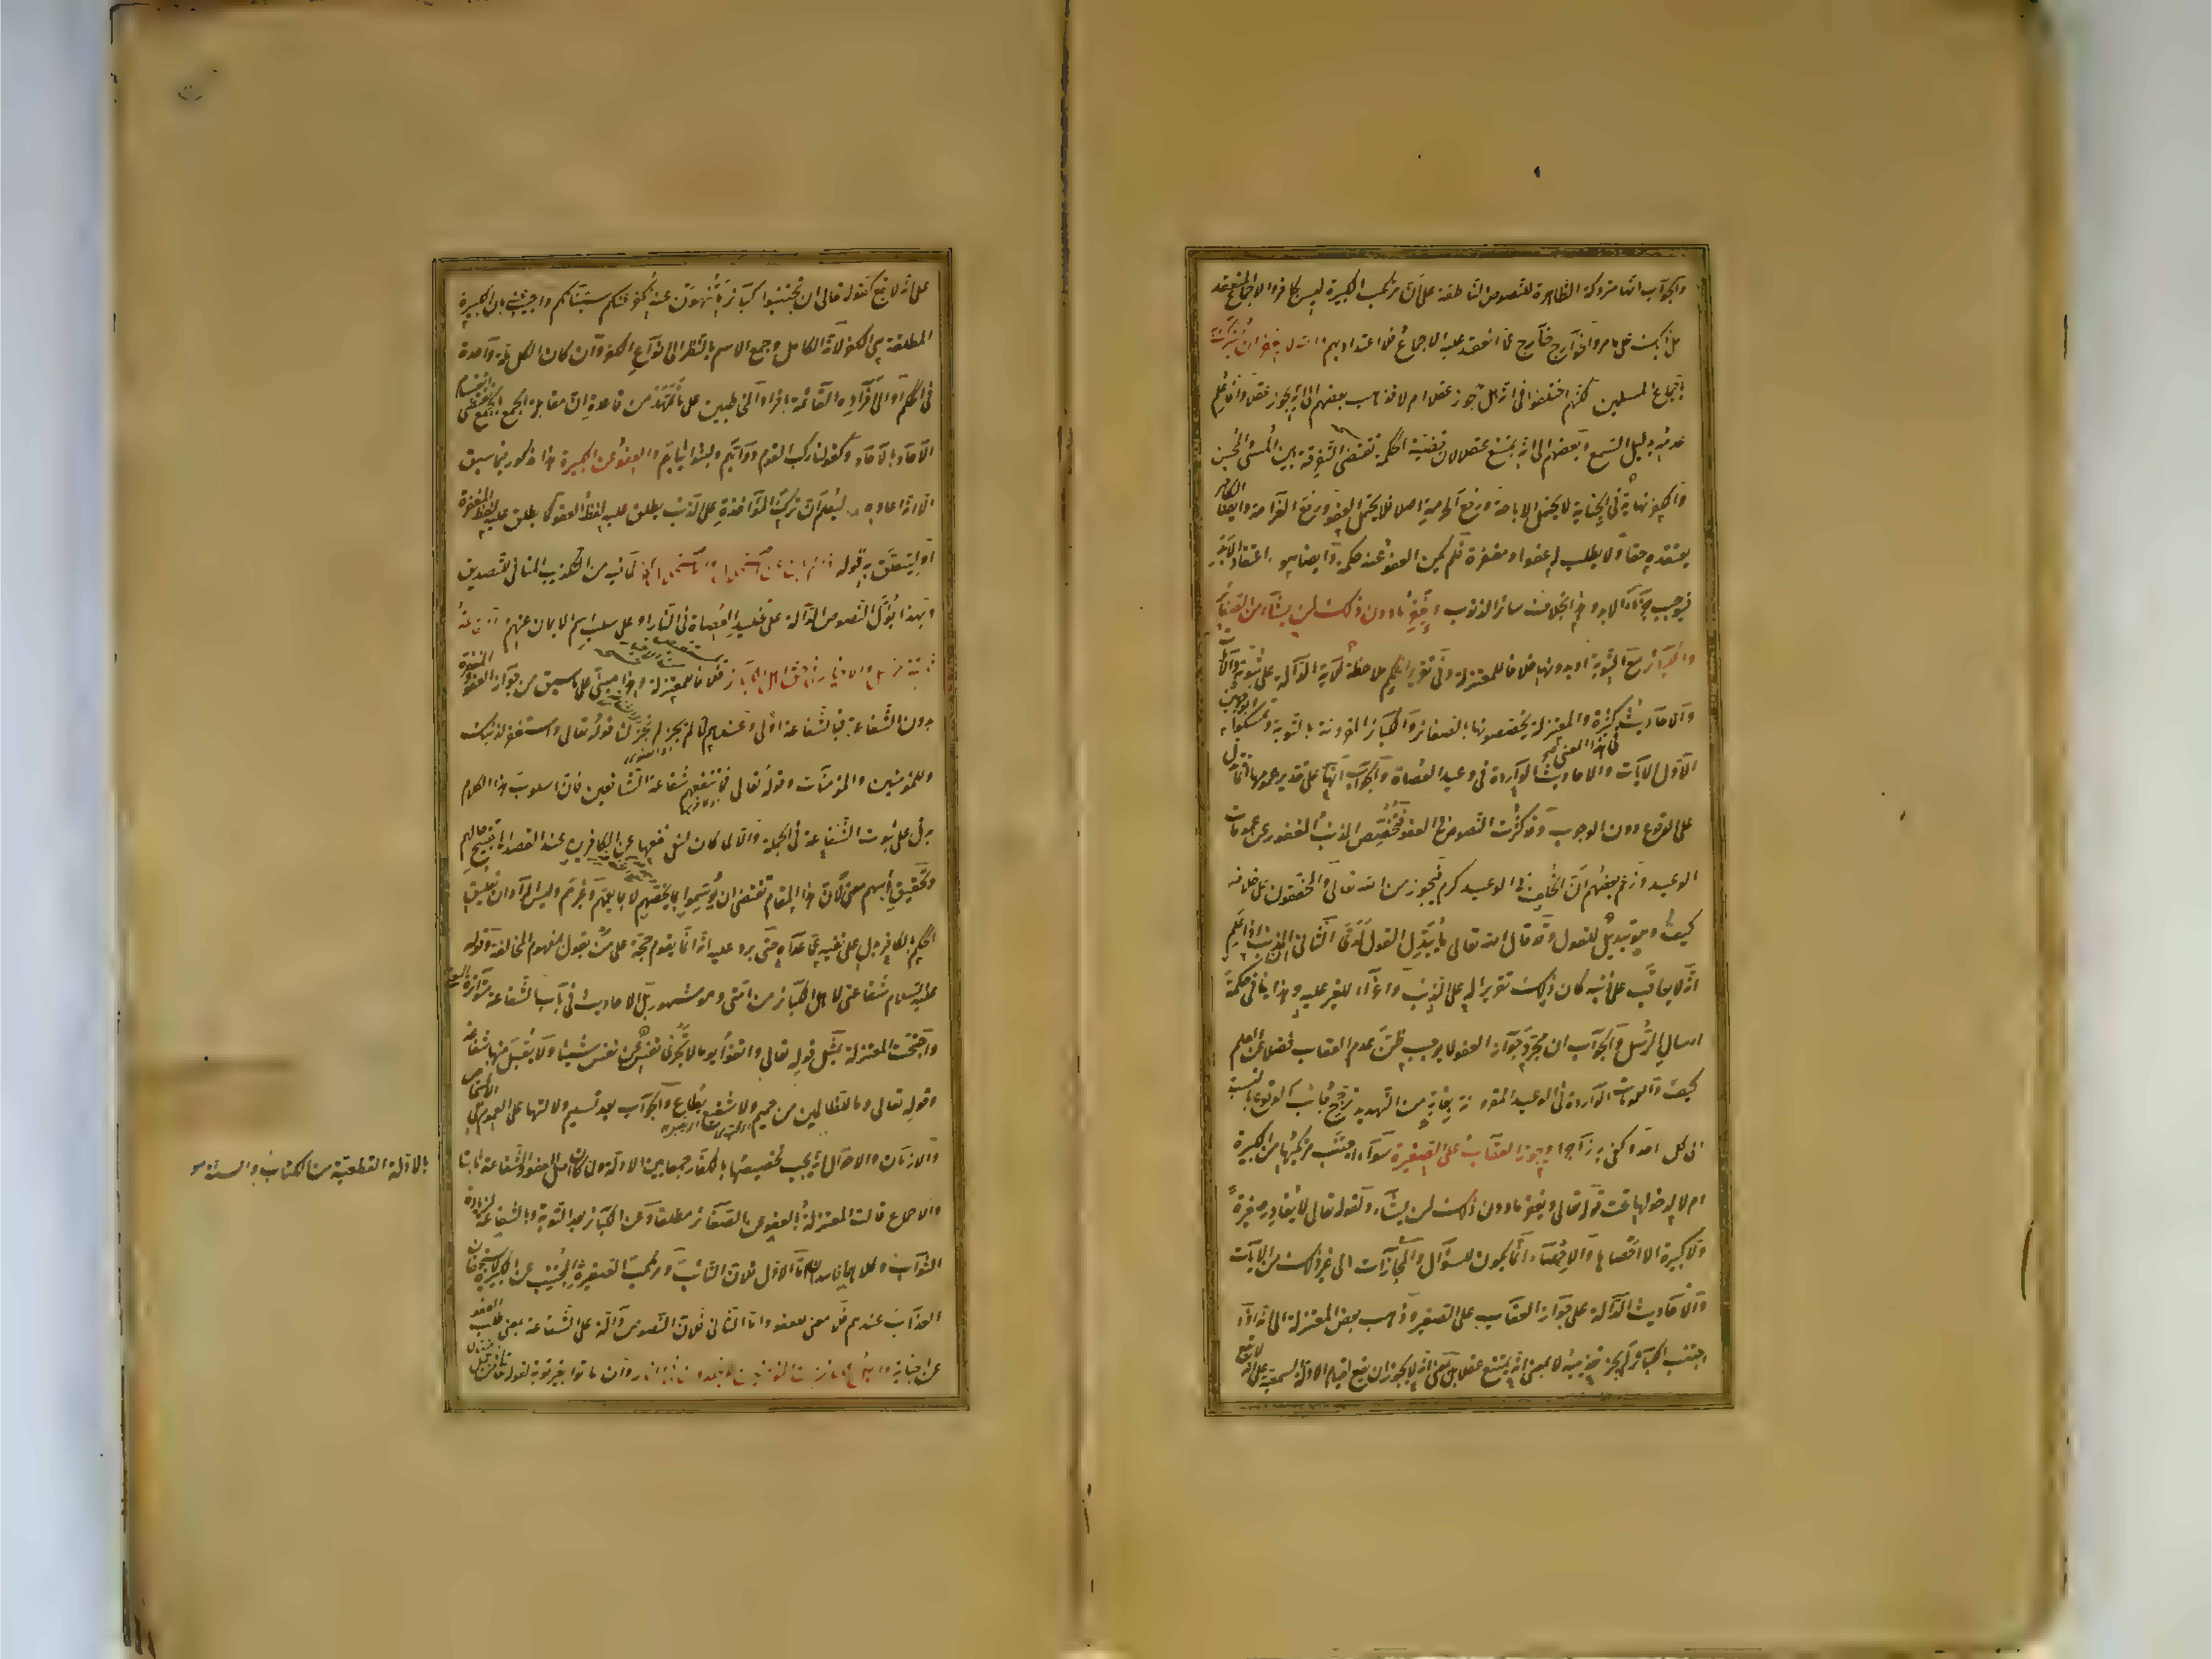 والجواب انها متروكة الظاهر للنصوص الناطقة على ان مرتكب الكبيرة ليس بكافر والاجماع المنعقد
على ذلك على ما مر والخوارج خارج عما انعقد عليه الاجماع فلا اعتداد بهم والله لا يغفر ان يشرك به
باجماع المسلمين لكنهم اختلفوا في انه هل يجوز عقلا ام لا فذهب بعضهم الى انه يجوز عقلا وانما علم
عدمه بدليل السمع وبعضهم الى انه يمتنع عقلا لان قضية الحكمة تقتضي التفرقة بين المسئ والمحسن
والكفر نهاية في الجناية لا يحتمل الاباحة ورفع الحرمة اصلا فلا يحتمل العفو ورفع الغرامة وايضا الكافر
يعتقده حقا ولا يطلب له عفوا ومغفرة فلم يكن العفو عنه حكمة وايضا هو اعتقاد الابد
فيوجب جزاء الابد وهذا بخلاف سائر الذنوب ويغفر ما دون ذلك لمن يشاء من الصغائر
والكبائر مع التوبة او بدونها خلافا للمعتزلة وفي تقرير الحكم ملاحظة للآية الدالة على ثبوته والآيات
والاحاديث كثيرة والمعتزلة يخصصونها بالصغائر والكبائر المقرونة بالتوبة وتمسكوا بوجهين
الاول الآيات والاحاديث الواردة في وعيد العصاة والجواب انها على تقدير عمومها انما تدل
في هذا المعنى
على الوقوع دون الوجوب وقد كثرت النصوص في العفو فيخصص المذنب المغفور عن عمومات
الوعيد وزعم بعضهم ان الخلف في الوعيد كرم فيجوز من الله تعالى والمحققون على خلافه
كيف وهو تبديل للقول وقد قال الله تعالى ما يبدل القول لدي الثاني ان المذنب اذا علم
انه لا يعاقب على ذنبه كان ذلك تقريرا له على الذنب واغراء للغير عليه وهذا ينافي حكمة
ارسال الرسل والجواب ان مجرد جواز العفو لا يوجب ظن عدم العقاب فضلا عن العلم
كيف والعمومات الواردة في الوعيد المقرونة بغاية من التهديد ترجح جانب الوقوع بالنسبة
الى كل احد وكفى به زاجرا ويجوز العقاب على الصغيرة سواء اجتنب مرتكبها من الكبيرة
ام لا لدخولها تحت قوله تعالى ويغفر ما دون ذلك لمن يشاء ولقوله تعالى لا يغادر صغيرة
ولا كبيرة الا احصاها والاحصاء انما يكون للسؤال والمجازات الى غير ذلك من الآيات
والاحاديث الدالة على جواز العقاب على الصغيرة وذهب بعض المعتزلة الى انه اذا
اجتنب الكبائر لم يجز تعذيبه لا بمعنى انه يمتنع عقلا بل بمعنى انه لا يجوز ان يقع لقيام الادلة السمعية على انه لا يقع
على انه لا يقع كقوله تعالى ان تجتنبوا كبائر ما تنهون عنه نكفر عنكم سيئاتكم واجيب بان الكبيرة
المطلقة هي الكفر لانه الكامل وجمع الاسم بالنظر الى انواع الكفر وان كان الكل ملة واحدة
في الحكم او الى افراده القائمة بافراد المخاطبين على ما تمهد من قاعدة ان مقابلة الجمع بالجمع تقتضي انقسام
الآحاد بالآحاد كقولنا ركب القوم دوابهم ولبسوا ثيابهم والعفو عن الكبيرة هذا مذكور فيما سبق
الا انه اعاده ليعلم ان ترك المؤاخذة على الذنب يطلق عليه لفظ العفو كما يطلق عليه لفظ المغفرة
او ليتعلق به قوله اذا لم يكن عن استحلال والاستحلال كفر لما فيه من التكذيب المنافي للتصديق
وبهذا يؤل النصوص الدالة على تخليد العصاة في النار او على سلب اسم الايمان عنهم والشفاعة
ثابتة للرسل والاخيار في حق اهل الكبائر خلافا للمعتزلة وهذا مبني على ما سبق من جواز العفو والمغفرة
بدون الشفاعة فبالشفاعة اولى وعندهم لما لم يجز لم تجز لنا قوله تعالى واستغفر لذنبك
وللمؤمنين والمؤمنات وقوله تعالى فما تنفعهم شفاعة الشافعين فان اسلوب هذا الكلام
يدل على ثبوت الشفاعة في الجملة والا لما كان لنفي نفعها عن الكافرين عند القصد الى تقبيح حالهم
وتحقيق بأسهم معنى لان هذا المقام تقتضي ان يوسموا بما يخصهم لا بما يعمهم وغيرهم وليس المراد ان تعليق
الحكم بالكافر يدل على نفيه عما عداه حتى يرد عليه انه انما يقوم حجة على من يقول بمفهوم المخالفة وقوله
عليه السلام شفاعتي لاهل الكبائر من امتي وهو مشهور بل الاحاديث في باب الشفاعة متواترة المعنى
واحتجت المعتزلة بمثل قوله تعالى واتقوا يوما لا تجزي نفس عن نفس شيئا ولا يقبل منها شفاعة
وقوله تعالى وما للظالمين من حميم ولا شفيع يطاع والجواب بعد تسليم دلالتها على العموم في الاشخاص
والازمان والاحوال انه يجب تخصيصها بالكفار جمعا بين الادلة ولما كان اصل العفو والشفاعة ثابتا
بالادلة القطعية من الكتاب والسنة
والاجماع قالت المعتزلة بالعفو عن الصغائر مطلقا وعن الكبائر بعد التوبة وبالشفاعة لزيادة
الثواب وكلاهما فاسد اما الاول فلان التائب ومرتكب الصغيرة المجتنب عن الكبيرة لا يستحقان
العذاب عندهم فلا معنى للعفو واما الثاني فلان النصوص دالة على الشفاعة بمعنى طلب العفو
عن الجناية واهل الكبائر من المؤمنين لا يخلدون في النار وان ماتوا بغير توبة لقوله تعالى فمن يعمل مثقال